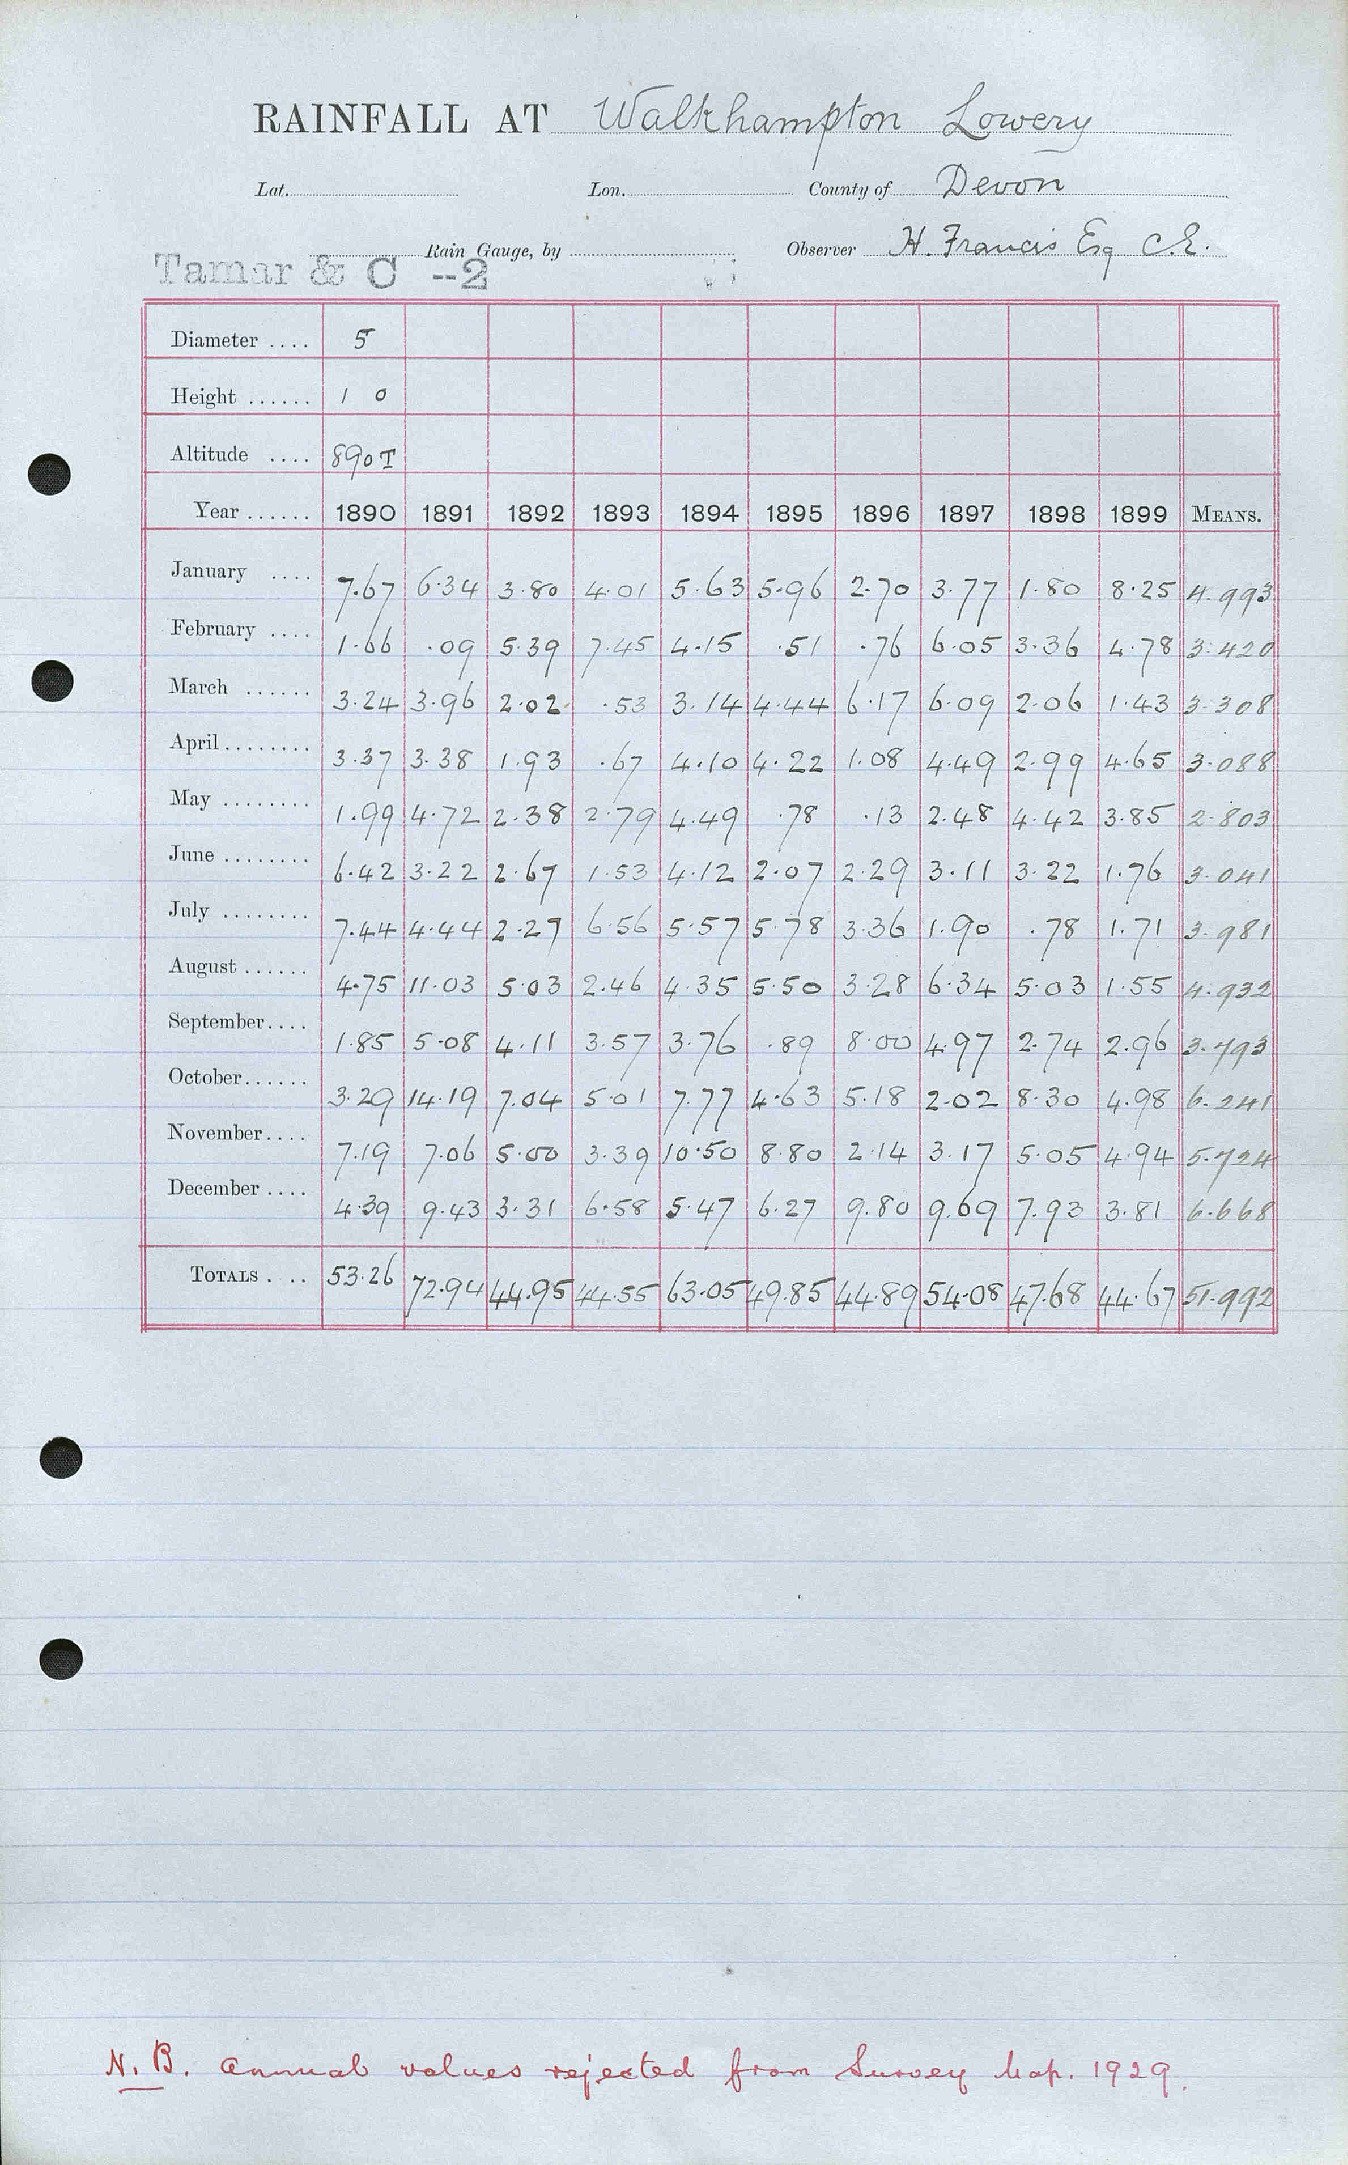 RAINFALL AT Walkhampton Lowery
Lat. Lon. County of Devon
Rain Gauge, by Observer H. Francis Esq C.E.
Tamar & C --2
Diameter .... 5
Height ...... 1 0
Altitude .... 890 T
Year ...... 1890 1891 1892 1893 1894 1895 1896 1897 1898 1899 MEANS.
January .... 7.67 6.34 3.80 4.01 5.63 5.96 2.70 3.77 1.80 8.25 4.993
February .... 1.66 .09 5.39 7.45 4.15 .51 .76 6.05 3.36 4.78 3.420
March ...... 3.24 3.96 2.02 .53 3.14 4.44 6.17 6.09 2.06 1.43 3.308
April ........ 3.37 3.38 1.93 .67 4.10 4.22 1.08 4.49 2.99 4.65 3.088
May ........ 1.99 4.72 2.38 2.79 4.49 .78 .13 2.48 4.42 3.85 2.803
June ........ 6.42 3.22 2.67 1.53 4.12 2.07 2.29 3.11 3.22 1.76 3.041
July ........ 7.44 4.44 2.27 6.56 5.57 5.78 3.36 1.90 .78 1.71 3.981
August ...... 4.75 11.03 5.03 2.46 4.35 5.50 3.28 6.34 5.03 1.55 4.932
September .... 1.85 5.08 4.11 3.57 3.76 .89 8.00 4.97 2.74 2.96 3.793
October ...... 3.29 14.19 7.04 5.01 7.77 4.63 5.18 2.02 8.30 4.98 6.241
November .... 7.19 7.06 5.00 3.39 10.50 8.80 2.14 3.17 5.05 4.94 5.724
December .... 4.39 9.43 3.31 6.58 5.47 6.27 9.80 9.69 7.93 3.81 6.668
TOTALS . .. 53.26 72.94 44.95 44.55 63.05 49.85 44.89 54.08 47.68 44.67 51.992
N.B. Annual values rejected from Survey Map. 1929.